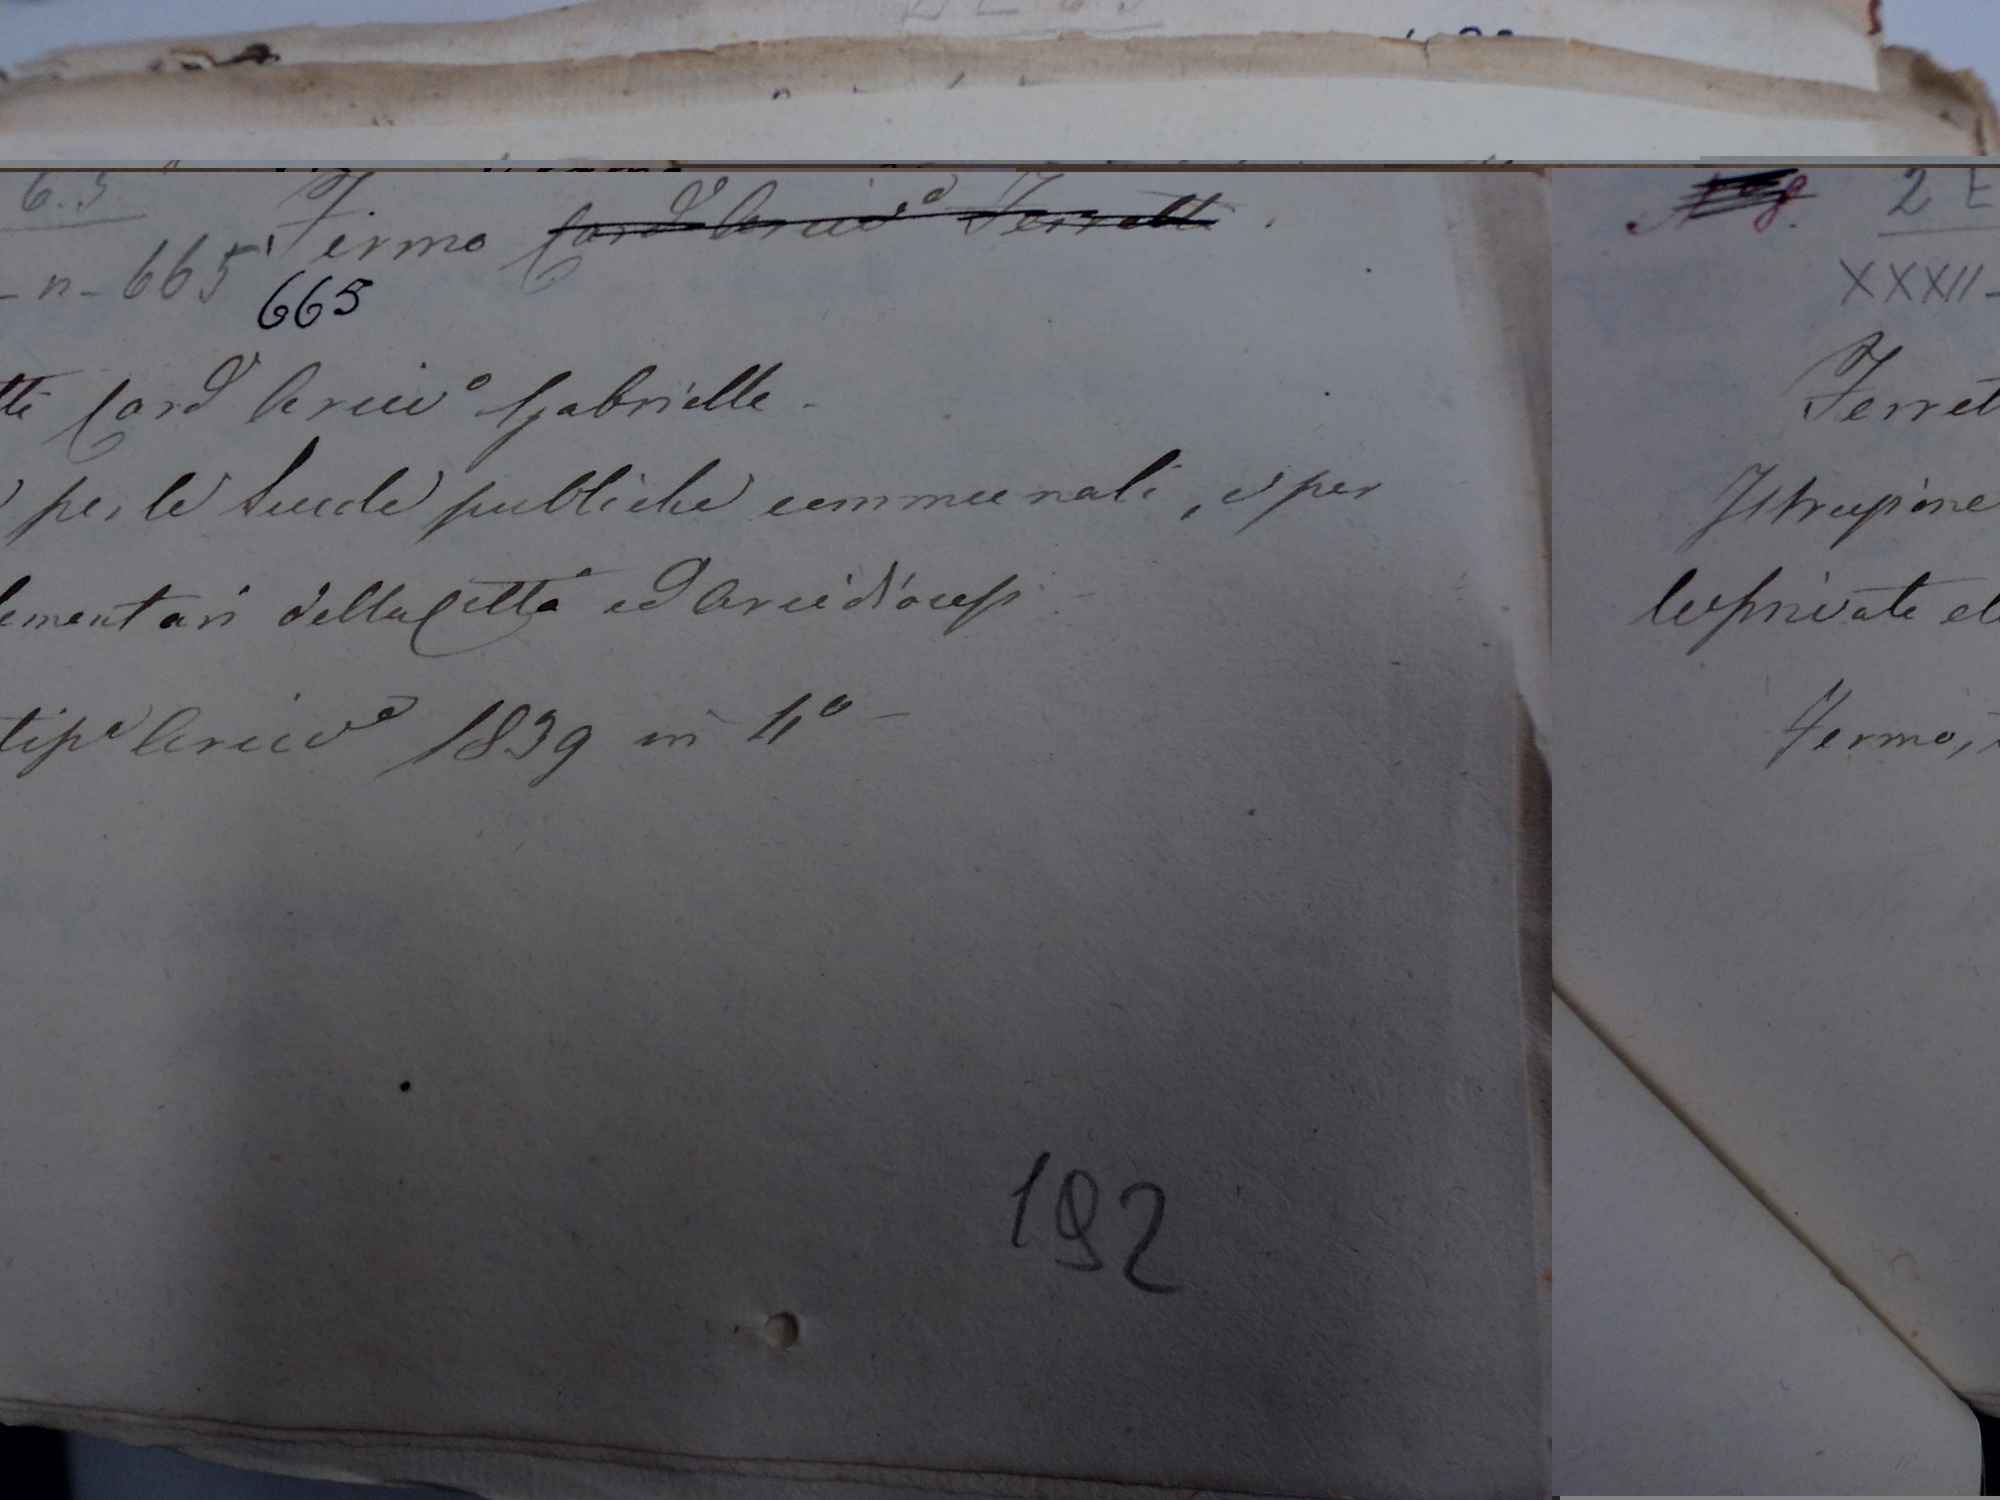 6.5
Fermo Card.l Arciv.o Ferretti.
- n - 665
665
tti Card.l Arciv.o Gabrielle -
per le Scuole publiche communali, e per
lementari della Città ed Arcidiocesi
tip.a Arciv.e 1839 in 4º -
192
2 E
XXXII -
Ferret
Istruzione
le private ele
Fermo,